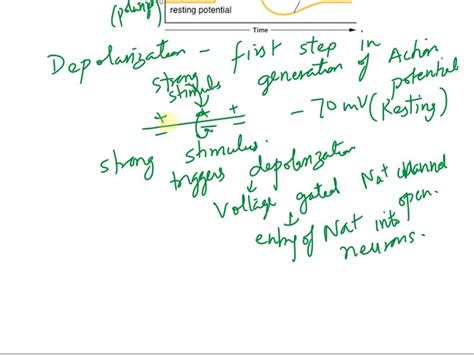 resting potential
Time
Depolarization - first step in
generation of Action
potential
strong
stimulus
+ + +
- 70 mV (Resting)
strong stimulus.
triggers depolarization
Voltage gated Na+ channel
open.
entry of Na+ into
neurons.